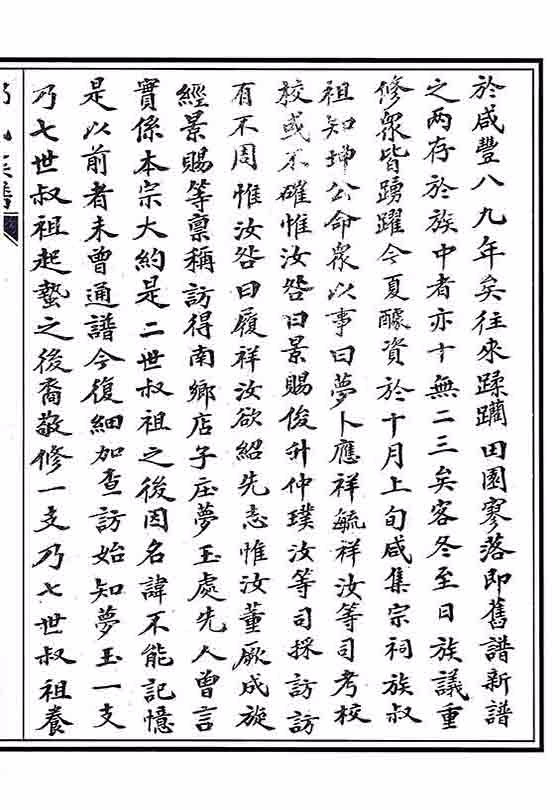 於咸豐八九年矣往來蹂躪田園寥落即舊譜新譜
之两存於族中者亦十無二三矣客冬至日族議重
修衆皆踴躍今夏醵資於十月上旬咸集宗祠族叔
祖知坤公命衆以事曰夢卜應祥毓祥汝等司考校
校或不確惟汝咎曰景賜俊升仲璞汝等司採訪訪
有不周惟汝咎曰履祥汝欲紹先志惟汝董厥成旋
經景賜等禀稱訪得南鄉店子庄夢玉處先人曾言
實係本宗大約是二世叔祖之後因名諱不能記憶
是以前者未曾通譜今復細加查訪始知夢玉一支
乃七世叔祖起蟄之後裔敬修一支乃七世叔祖養
氏族譜